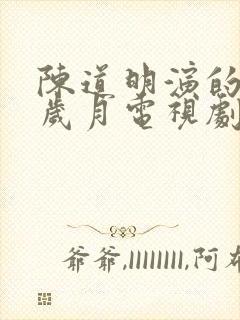 陳道明演的
歲月電視劇
爺爺,llllllll,阿布